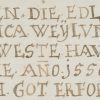 EN. DIE. EDL
ICA WEYLVN
WESTE. HAV
E. AÑO. 1550
. GOT ERFO